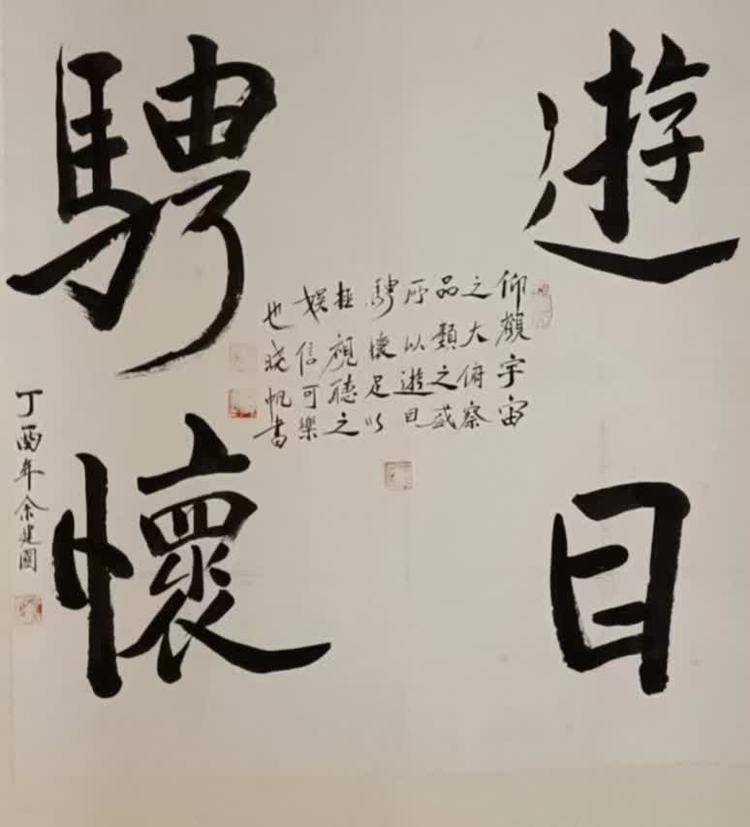 遊目
騁懷
仰觀宇宙
之大俯察
品類之盛
所以遊目
騁懷足以
極視聽之
娛信可樂
也晓帆書
丁酉年余建國